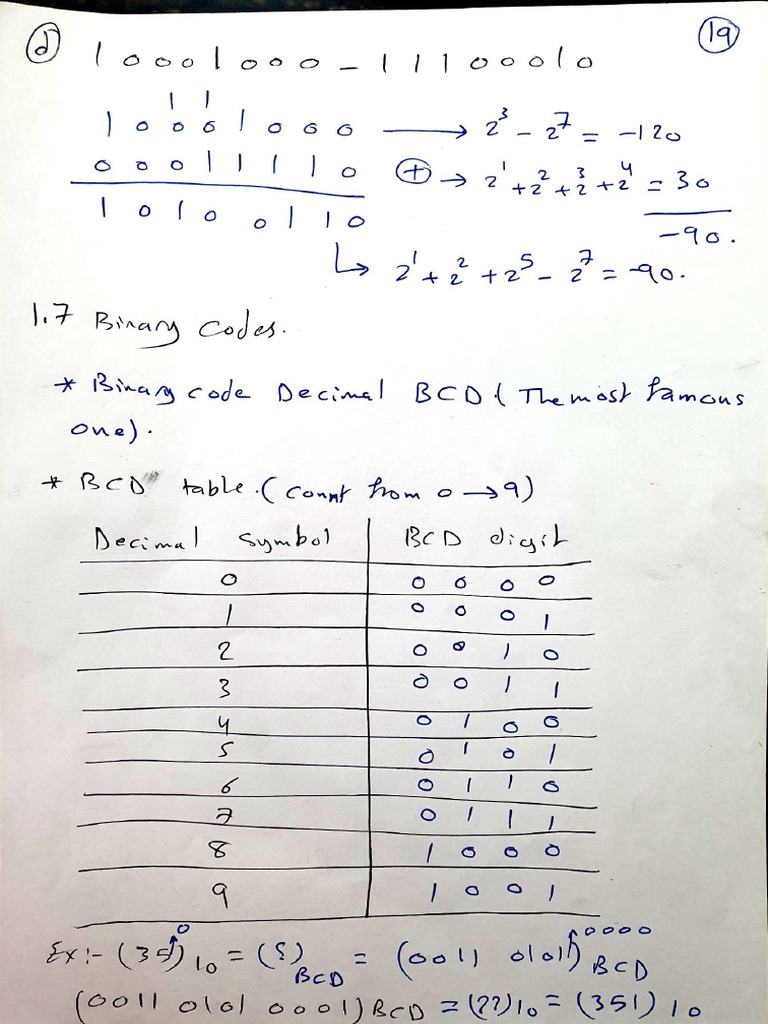 (d) 10001000 - 11100010
(19)
1 1
1 0 0 0 1 0 0 0 → 2^3 - 2^7 = -120
0 0 0 1 1 1 1 0 (+) → 2^1 + 2^2 + 2^3 + 2^4 = 30
1 0 1 0 0 1 1 0
-90.
↳ 2^1 + 2^2 + 2^5 - 2^7 = -90.
1.7 Binary codes.
* Binary code Decimal BCD (The most famous
one).
* BCD table. (count from 0 → 9)
Decimal symbol | BCD digit
0 | 0 0 0 0
1 | 0 0 0 1
2 | 0 0 1 0
3 | 0 0 1 1
4 | 0 1 0 0
5 | 0 1 0 1
6 | 0 1 1 0
7 | 0 1 1 1
8 | 1 0 0 0
9 | 1 0 0 1
0 0000
Ex:- (35)10 = (?)BCD = (0011 0101)BCD
(0011 0101 0001)BCD = (??)10 = (351)10